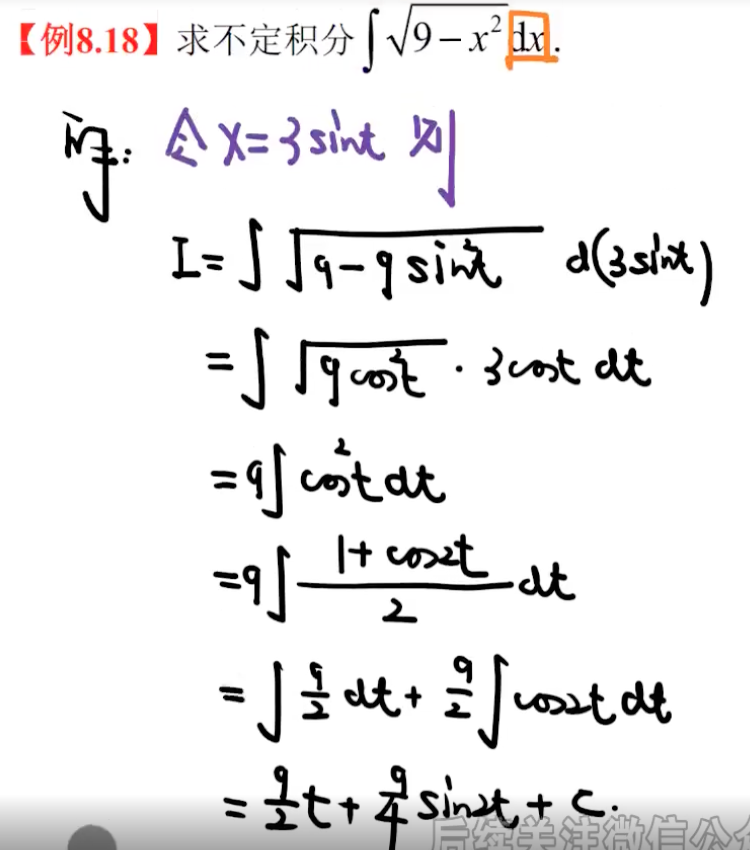 【例8.18】求不定积分∫√(9−x²)dx.
解: 令 x=3sint 则
I=∫√(9−9sin²t) d(3sint)
=∫√(9cos²t)·3cost dt
=9∫cos²t dt
=9∫(1+cos2t)/2 dt
=∫9/2 dt+9/2∫cos2t dt
=9/2t+9/4sin2t+C.
后续关注微信公众